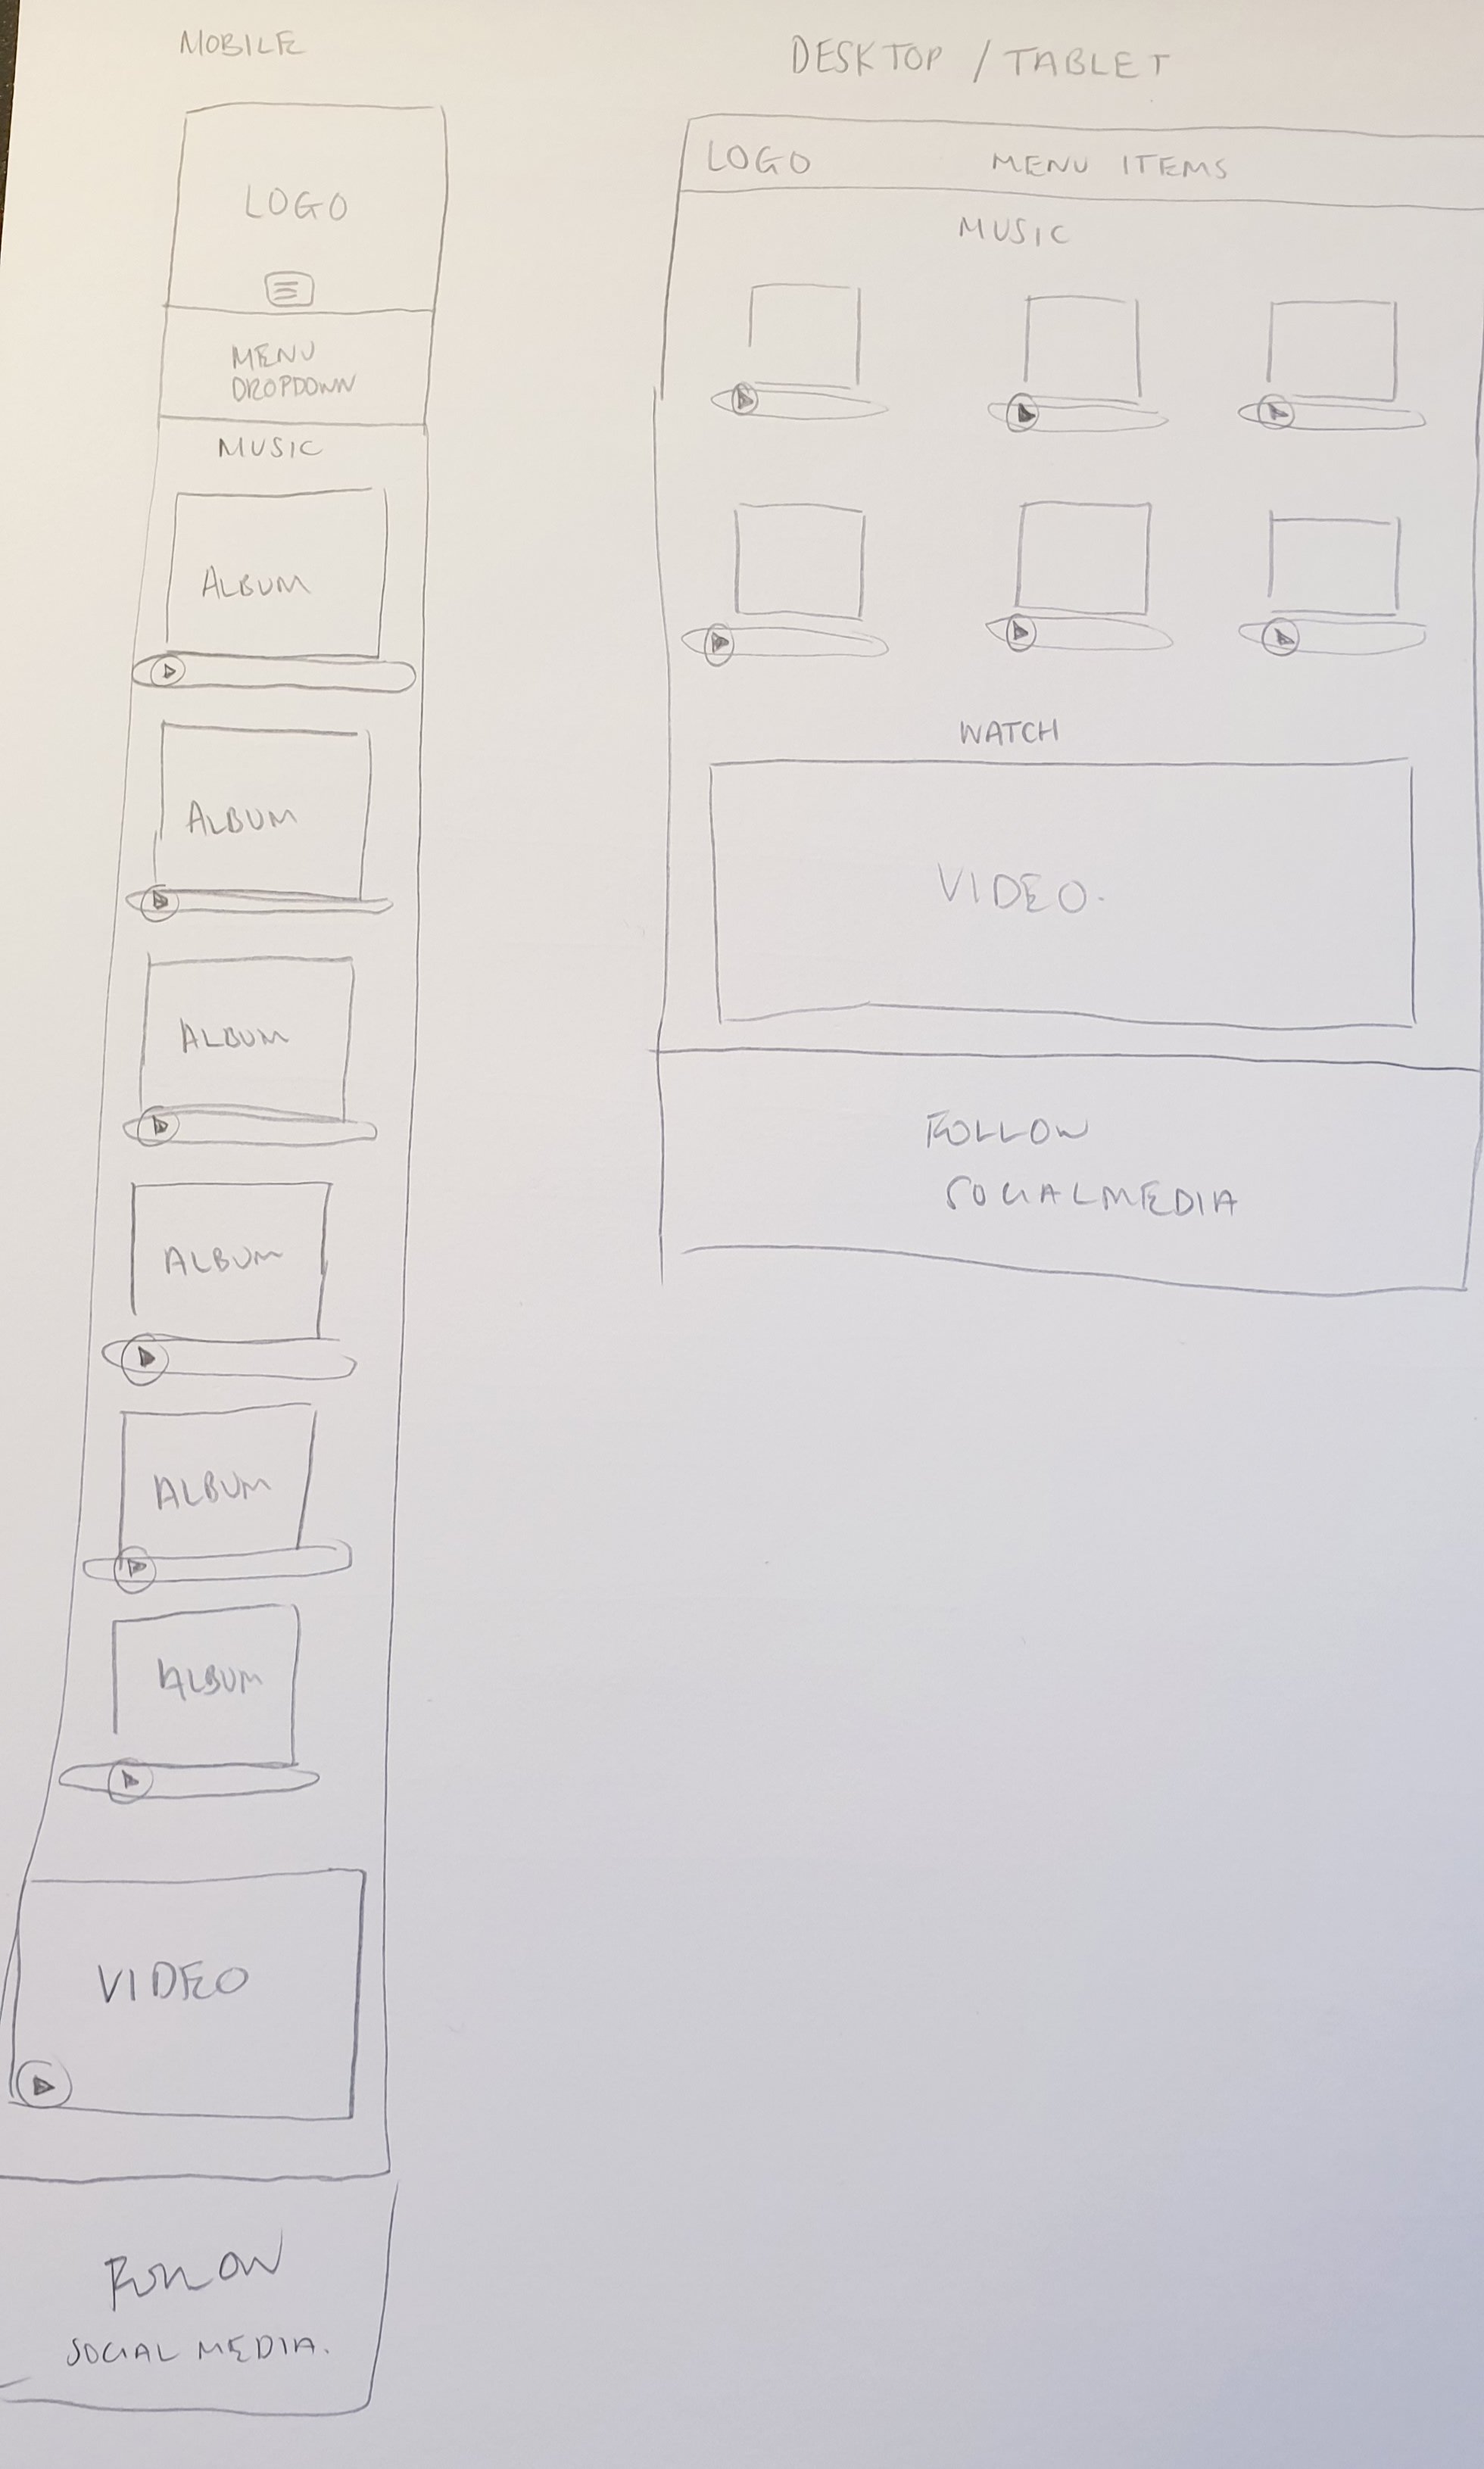 MOBILE
LOGO
MENU
DROPDOWN
MUSIC
ALBUM
ALBUM
ALBUM
ALBUM
ALBUM
ALBUM
VIDEO
FOLLOW
SOCIAL MEDIA.
DESKTOP / TABLET
LOGO MENU ITEMS
MUSIC
WATCH
VIDEO.
FOLLOW
SOCIALMEDIA